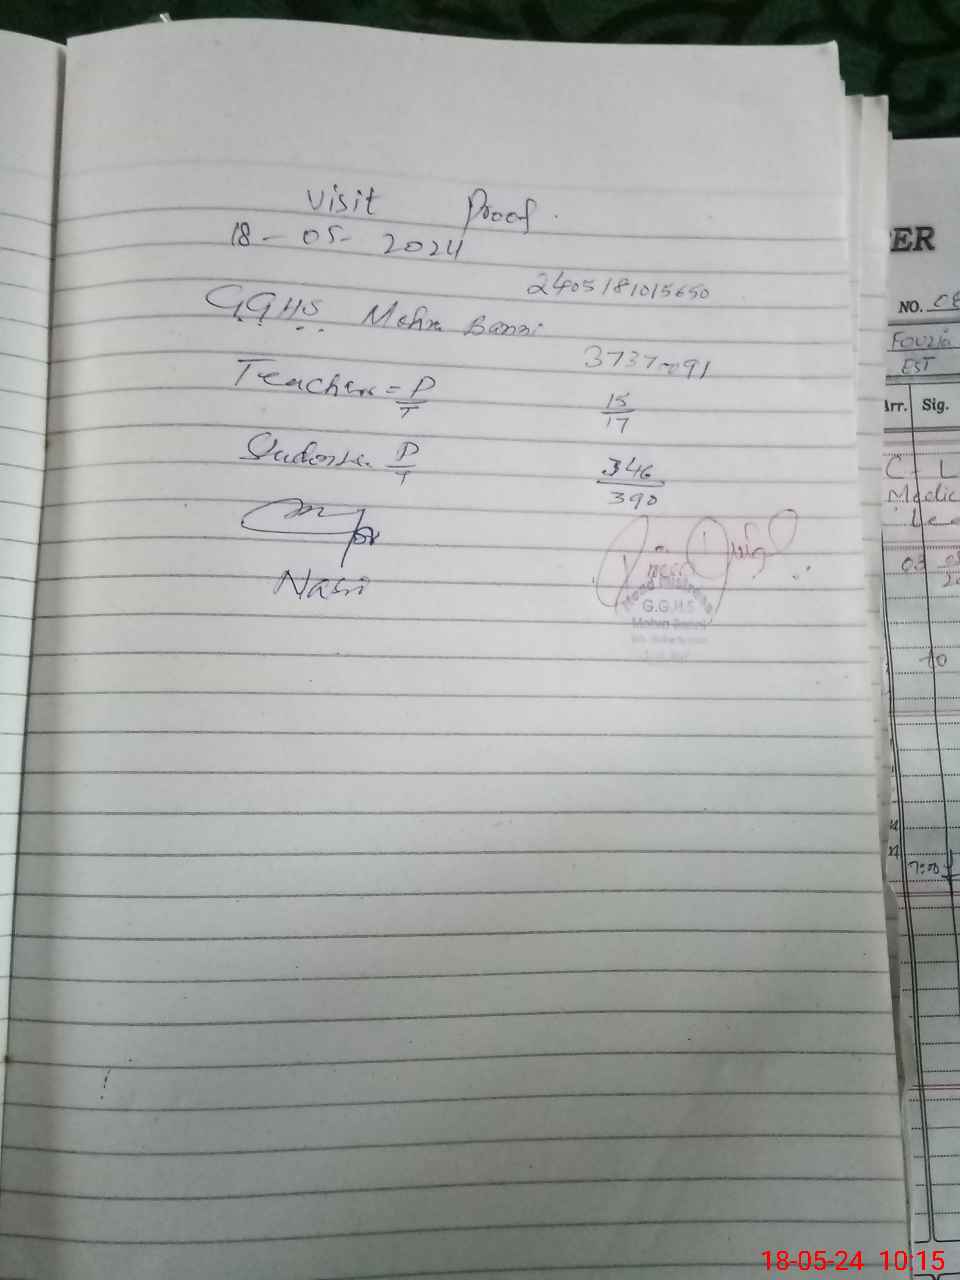 Visit Proof.
18-05-2024
2405181015650
G.G.H.S. Mohra Banni
3737-091
Teachers = P/T 15/17
Students = P/T 346/390
Nasir
Head Mistress
G.G.H.S
Mohra Banni
ER
NO. 08
Fouzia
EST
Arr. Sig.
C-L
Medic
Lea
03
10
7:00
18-05-24 10:15